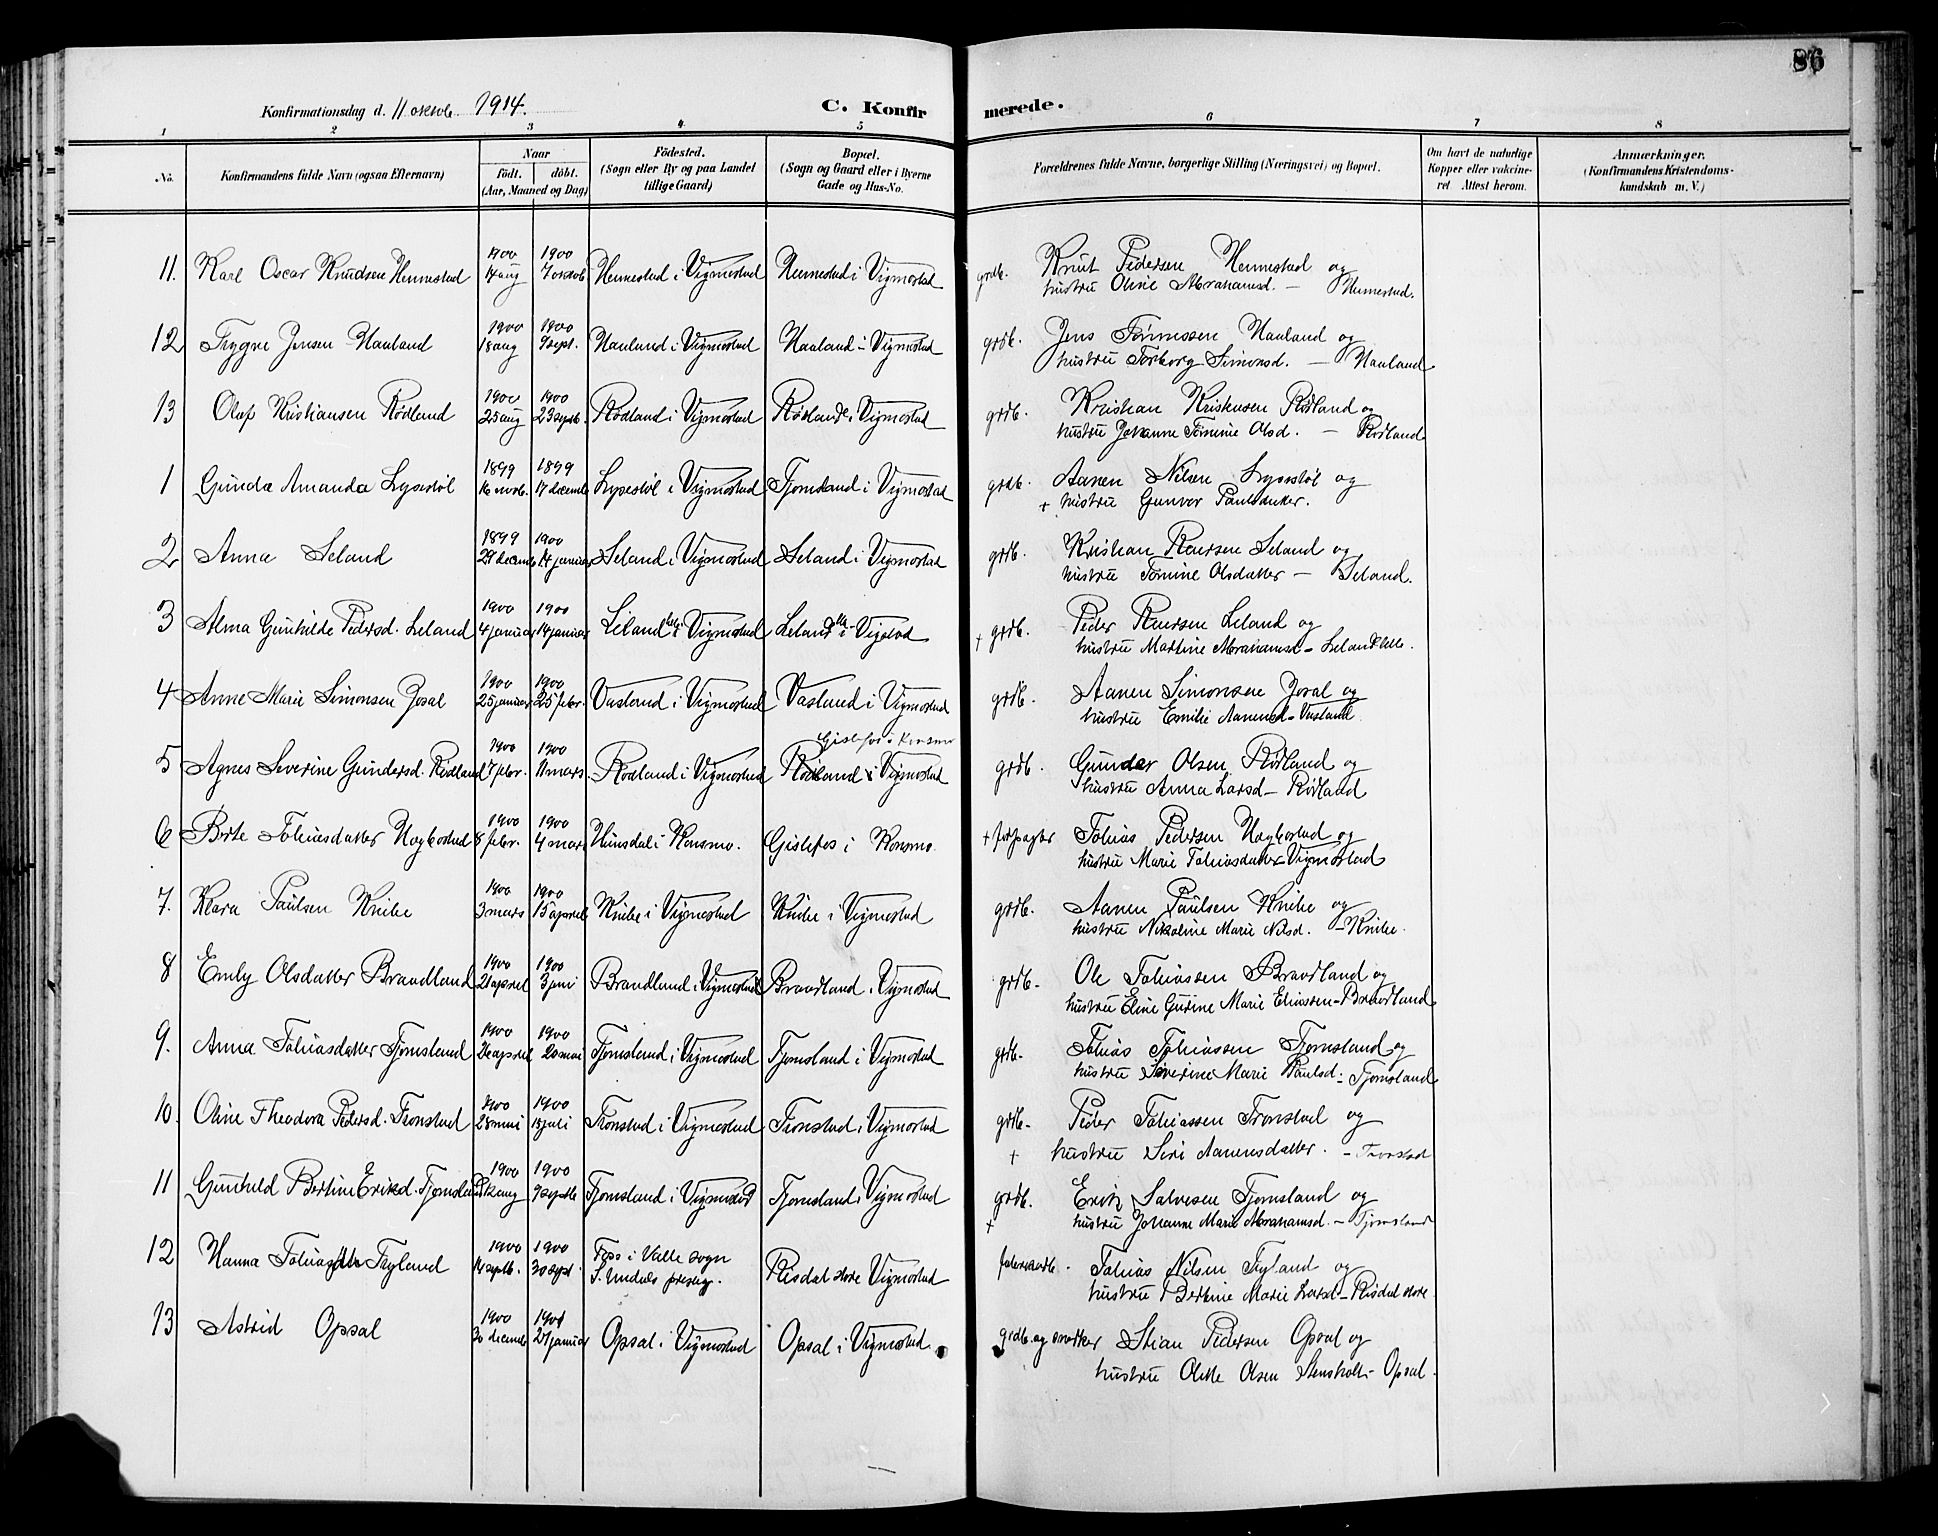 86
Konfirmationsdag d. 11 oktob. 1914.
C. Konfirmerede.
1 2 3 4 5 6 7 8
No.
Konfirmandens fulde Navn (ogsaa Efternavn)
Naar
födt. döbt.
(Aar, Maaned og Dag)
Födested.
(Sogn eller By og paa Landet
tillige Gaard)
Bopæl.
(Sogn og Gaard eller i Byerne
Gade og Hus-No.
Forældrenes fulde Navne, borgerlige Stilling (Næringsvei) og Bopæl.
Om havt de naturlige
Kopper eller vakcine-
ret. Attest herom.
Anmærkninger.
(Konfirmandens Kristendoms-
kundskab m. V.)
11. Karl Oscar Knudsen Hennestad 1900 14 aug 1900 7 oktob Hennestad i Vigmostad Hennestad i Vigmostad grdb. Knut Pedersen Hennestad og
hustru Oline Abrahamsd. - Hennestad.
12 Trygve Jensen Haaland 1900 18 aug 1900 9 sept. Haaland i Vigmostad Haaland i Vigmostad grdb. Jens Tønnessen Haaland og
hustru Torborg Simonsd. - Haaland
13 Olaf Kristiansen Rødland 1900 25 aug 1900 23 septb. Rødland i Vigmostad Rødland i Vigmostad grdb. Kristian Kristensen Rødland og
hustru Johanne Tomine Olsd. - Rødland
1 Gunda Amanda Lysestøl 1899 16 novb. 1899 17 decemb Lysestøl i Vigmostad Tjomsland i Vigmostad grdb. Aanen Nilsen Lysestøl og
+ hustru Gunvor Paulsdatter.
2 Anna Leland 1899 29 decemb 1900 14 januar Leland i Vigmostad Leland i Vigmostad grdb. Kristian Reiersen Leland og
hustru Tomine Olsdatter - Leland.
3 Alma Gunhilde Pedersd. Leland 1900 4 januar 1900 14 januar Leland i Vigmostad Leland i Vigstad + grdb. Peder Reiersen Leland og
hustru Martine Abrahamsd -
4 Anne Marie Simonsen Josal 1900 25 januar 1900 25 febr. Vasland i Vigmostad Vasland i Vigmostad grdb. Aanen Simonsen Josal og
hustru Emilie Aanensd - Vasland
Gislefos i Konsmo
5 Agnes Severine Gundersd. Rødland 1900 7 febr. 1900 11 mars. Rødland i Vigmostad Rødland i Vigmostad grdb. Gunder Olsen Rødland og
hustru Anna Larsd - Rødland
6 Berte Tobiasdatter Høgbostad 1900 8 febr. 1900 4 mars Hunsdal i Konsmo. Gislefos i Konsmo. + forpagter Tobias Pedersen Høgbostad og
hustru Marie Tobiasdatter - Vigmostad
7. Klara Paulsen Knibe 1900 3 mars 1900 15 april Knibe i Vigmostad Knibe i Vigmostad grdb. Aanen Paulsen Knibe og
hustru Nikoline Marie Nilsd. - Knibe.
8 Emly Olsdatter Braadland 1900 21 april 1900 3 juni Braadland i Vigmostad Braadland i Vigmostad grdb - Ole Tobiassen Braadland og
hustru Eline Gurine Marie Eliassen - Braadland
9. Anna Tobiasdatter Tjomsland 1900 26 april 1900 20 mai Tjomsland i Vigmostad Tjomsland i Vigmostad grdb - Tobias Tobiassen Tjomsland og
hustru Severine Marie Paulsd - Tjomsland
10. Oline Theodora Pedersd. Tronstad 1900 28 mai 1900 juli Tronstad i Vigmostad. Tronstad i Vigmostad grdb - Peder Tobiassen Tronstad og
+ hustru Siri Aanensdatter. - Tronstad
11 Gunhild Bertine Eriksd. Tjomsland 1900 aug 1900 9 septb Tjomsland i Vigmostad Tjomsland i Vigmostad grdb. Erik Salvesen Tjomsland og
+ hustru Johanne Marie Abrahamsd. - Tjomsland
12 Hanna Tobiasdtr Fryland 1900 14 septb. 1900 30 sept. Foss i Valle sogn
S. Undals prestegj. Risdal store Vigmostad Tobias Nilsen Fryland og
hustru Bertine Marie Larsd - Risdal store
13 Astrid Opsal 1900 30 decemb 1901 27 januar Opsal i Vigmostad Opsal i Vigmostad. grdb. og snedker Stian Pedersen Opsal og
hustru Olette Olsen Stensholt - Opsal.